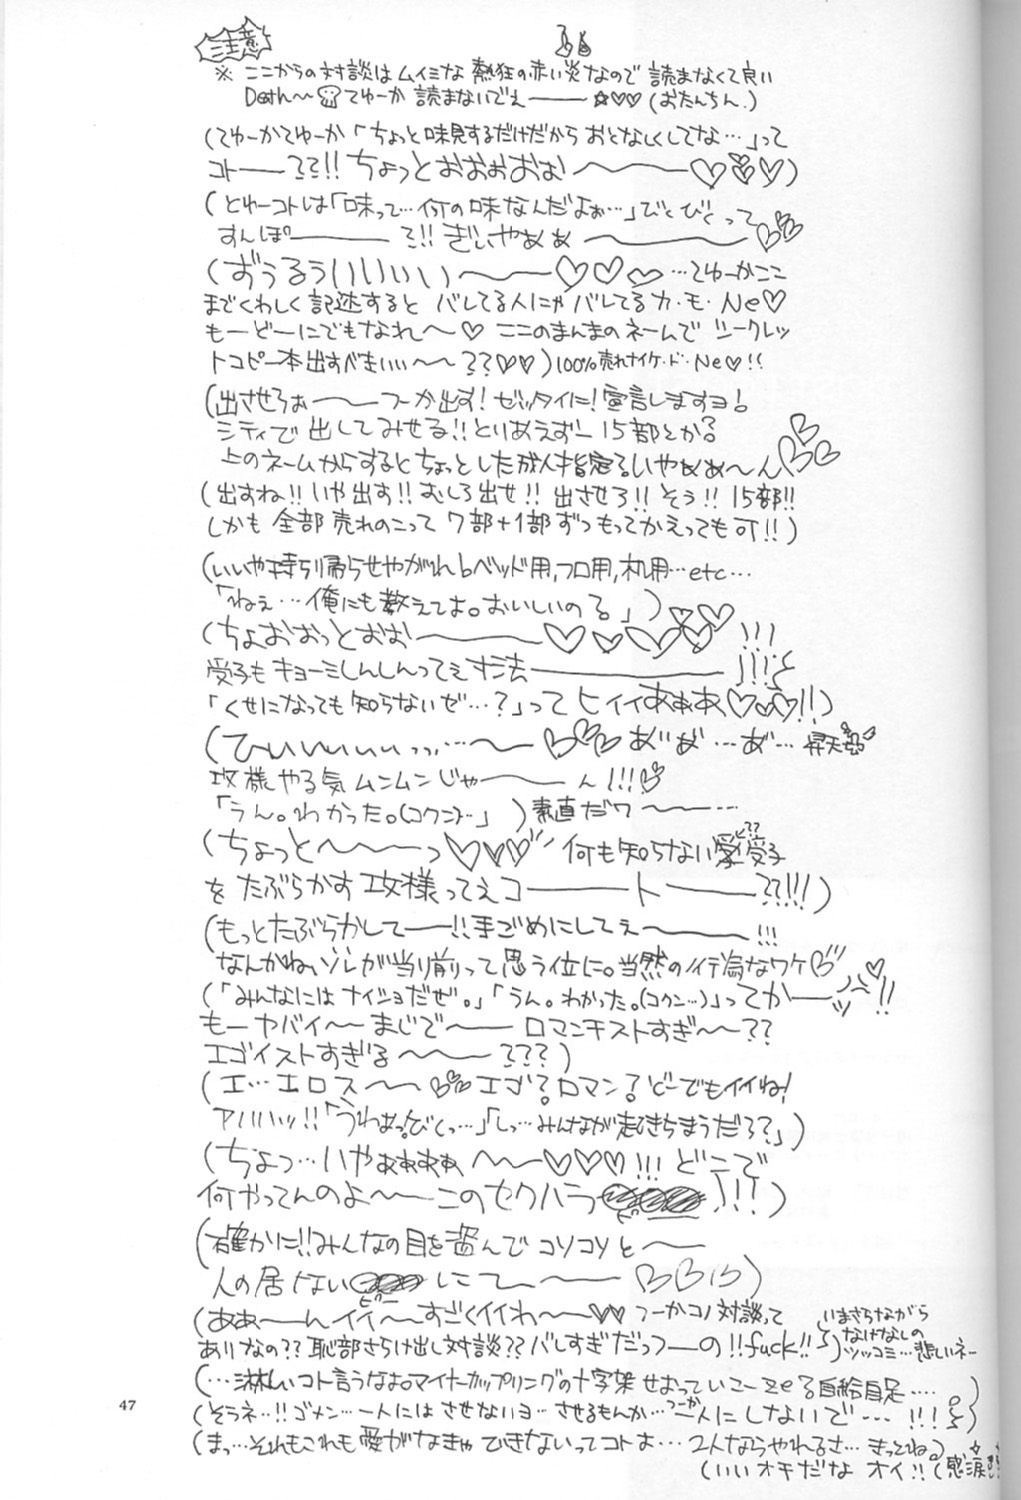 注意
※ ここからの対談はムイミな熱狂の赤い炎なので読まなくて良い
Death〜 てゆーか読まないでえ―――☆♡♡(おたんちん。)
(てゆーかてゆーか「ちょっと味見するだけだからおとなしくしてな…」って
コト――??!!ちょっとおおおおお〜――♡♡♡)
(とゆーコトは「味って…何の味なんだよぉ…」びくびくって
すんぽ――― ?!!ぎいやぁぁ〜―――♡♡
(ずうるういいいい〜――♡♡♡…てゆーかここ
までくわしく記述するとバレてる人にゃバレてるカ・モ・Ne♡
もーどーにでもなれ〜♡ここのまんまのネームでシークレッ
トコピー本出すべきぃぃ〜〜??♡♡)100%売れナイケ・ド・Ne♡!!
(出させろぉ―――つーか出す!ゼッタイに!宣言しますヨ!
シティで出してみせる!!とりあえずー15部とか?
上のネームからするとちょっとした成人指定?いやぁぁぁ〜ん♡♡♡
(出すね!!いや出す!!むしろ出せ!!出させろ!!そう!!15部!!
しかも全部売れのこって7部+1部ずつもってかえっても可!!)
(いいや持ち帰らせやがれbベッド用,フロ用,机用…etc…
「ねぇ…俺にも教えてよ。おいしいの?」)♡♡
(ちょおおっとおお――――♡♡♡♡!!!
受子もキョーミしんしんってえ寸法――――――!!!
「くせになっても知らないぜ…?」ってヒィィあぁぁあ♡♡♡!!)
(ひぃぃぃぃぃっっ…〜―♡♡♡あ゛あ゛…あ゛…昇天
攻様やる気ムンムンじゃ―――ん!!!♡
「うん。わかった。(コクン)…」)素直だワ〜――…
(ちょっと〜――っ♡♡♡何も知らない愛受子
をたぶらかす攻様ってえコ―――ト―――??!!!)
(もっとたぶらかして――!!手ごめにしてえ〜―――!!!
なんかね、ソレが当り前って思う位に。当然の行為なワケ♡
(「みんなにはナイショだぜ。」「うん。わかった。(コクン…)」ってか――♡!!
もーヤバイ〜〜まじで〜――ロマンチストすぎ〜〜??
エゴイストすぎる〜――???)
(エ…エロス〜〜♡♡エゴ?ロマン?どーでもイイね!
アハハハッ!!「うわぁっ?びくっ…」「しっ…みんなが起きちまうだろ?」)
(ちょっ…いやぁぁぁぁぁ〜―♡♡♡!!!どこで
何やってんのよ〜――このセクハラ!!!)
(確かに!!みんなの目を盗んでコソコソと〜――
人の居ない にて〜―――♡♡♡)
(あぁ〜――んイイ〜〜すごくイイわ〜――♡♡つーかコノ対談って
ありなの??恥部さらけ出し対談??バレすぎだっつーの!!fuck!!
いまさらながら
なけなしの
ツッコミ…悲しいネー
(…淋しいコト言うなよ。マイナーカップリングの十字架せおっていこーze?自給自足…. )
(そうネ…!!ゴメン…一人にはさせないヨ…させるもんか…つーか一人にしないで…!!!)
(まっ…それもこれも愛がなきゃできないってコトよ…2人ならやれるさ…きってね。)
(いいオキだなオイ!!(感涙
47